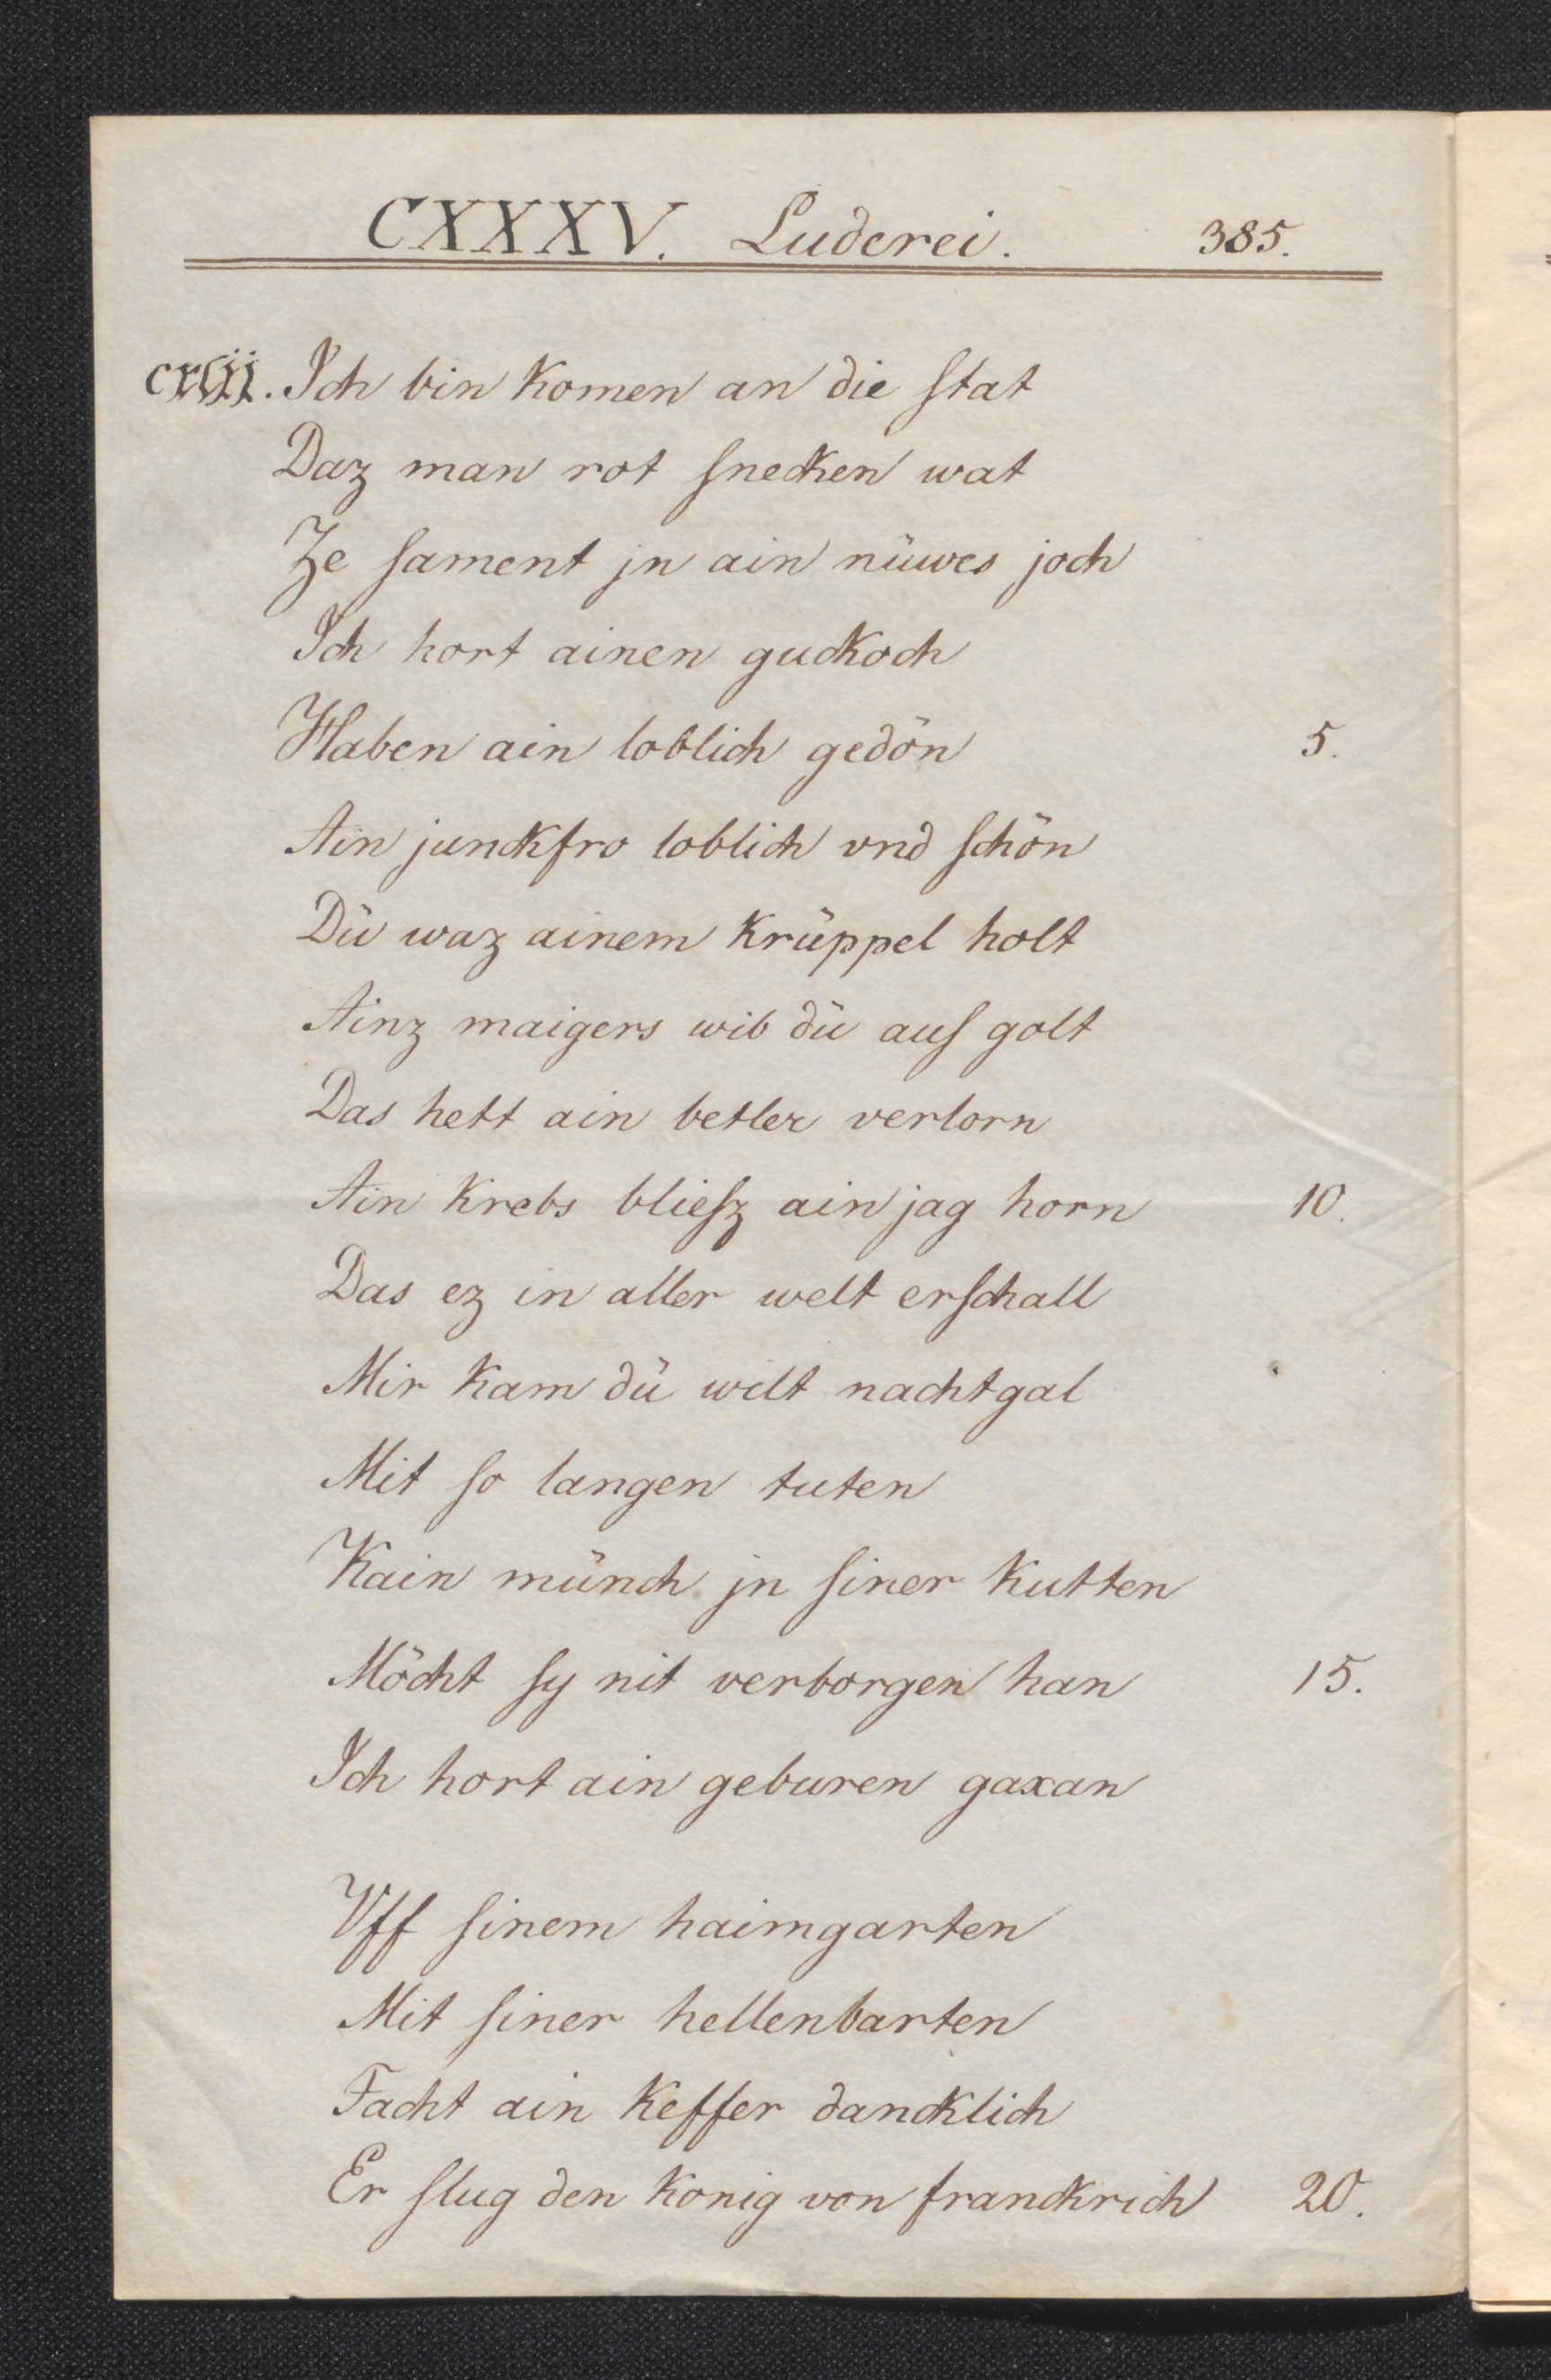 CXXXV. Luderei. 385.
Ich bin komen an die ſtat
Daz man rot ſnecken wat
Ze ſament jn ain nüwes joch
Ich hort ainen guckoch
Haben ain loblich gedön 5.
Ain junckfro loblich vnd ſchön
Dü waz ainem krüppel holt
Ainz maigers wib dü auſ golt
Das hett ain betler verlorn
Ain krebs blieſz ain jag horn 10.
Das ez in aller welt erſchall
Mir kam dü wilt nachtgal
Mit ſo langen tuten
Kain münch jn ſiner kutten
Möcht ſy nit verborgen han 15.
Ich hort ain geburen gaxan
Vff ſinem haimgarten
Mit ſiner hellenbarten
Facht ain keffer dancklich
Er ſlug den konig von franckrich 20.